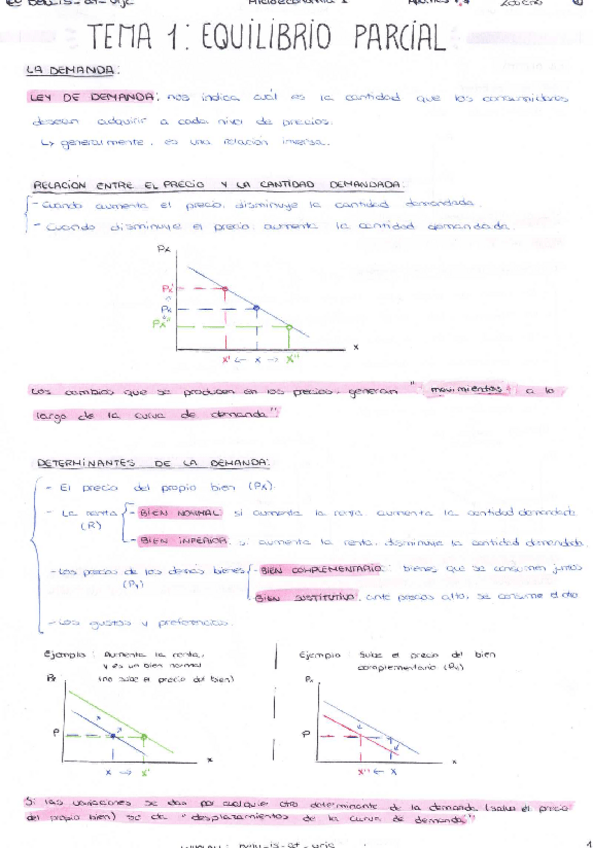 Microeconomía I
TEMA 1: EQUILIBRIO PARCIAL
LA DEMANDA:
LEY DE DEMANDA: nos indica cuál es la cantidad que los consumidores
desean adquirir a cada nivel de precios.
↳ generalmente, es una relación inversa.
RELACION ENTRE EL PRECIO Y LA CANTIDAD DEMANDADA:
- Cuando aumenta el precio, disminuye la cantidad demandada.
- Cuando disminuye el precio, aumenta la cantidad demandada.
Px
Px'
Px
Px''
x
x' ← x → x''
Los cambios que se producen en los precios, generan "movimientos a lo
largo de la curva de demanda".
DETERMINANTES DE LA DEMANDA:
- El precio del propio bien (Px).
- La renta (R)
- BIEN NORMAL: si aumenta la renta, aumenta la cantidad demandada.
- BIEN INFERIOR: si aumenta la renta, disminuye la cantidad demandada.
- Los precios de los demás bienes (Py)
- BIEN COMPLEMENTARIO: bienes que se consumen juntos
BIEN SUSTITUTIVO: ante precios alto, se consume el otro
- Los gustos y preferencias.
Ejemplo: Aumenta la renta,
y es un bien normal
(no sube el precio del bien)
Px
P
x
x → x'
Ejemplo: Sube el precio del bien
complementario (Py)
Px
P
x
x'' ← x
Si las variaciones se dan por cualquier otro determinante de la demanda (salvo el precio
del propio bien) se da "desplazamientos de la curva de demanda"
1